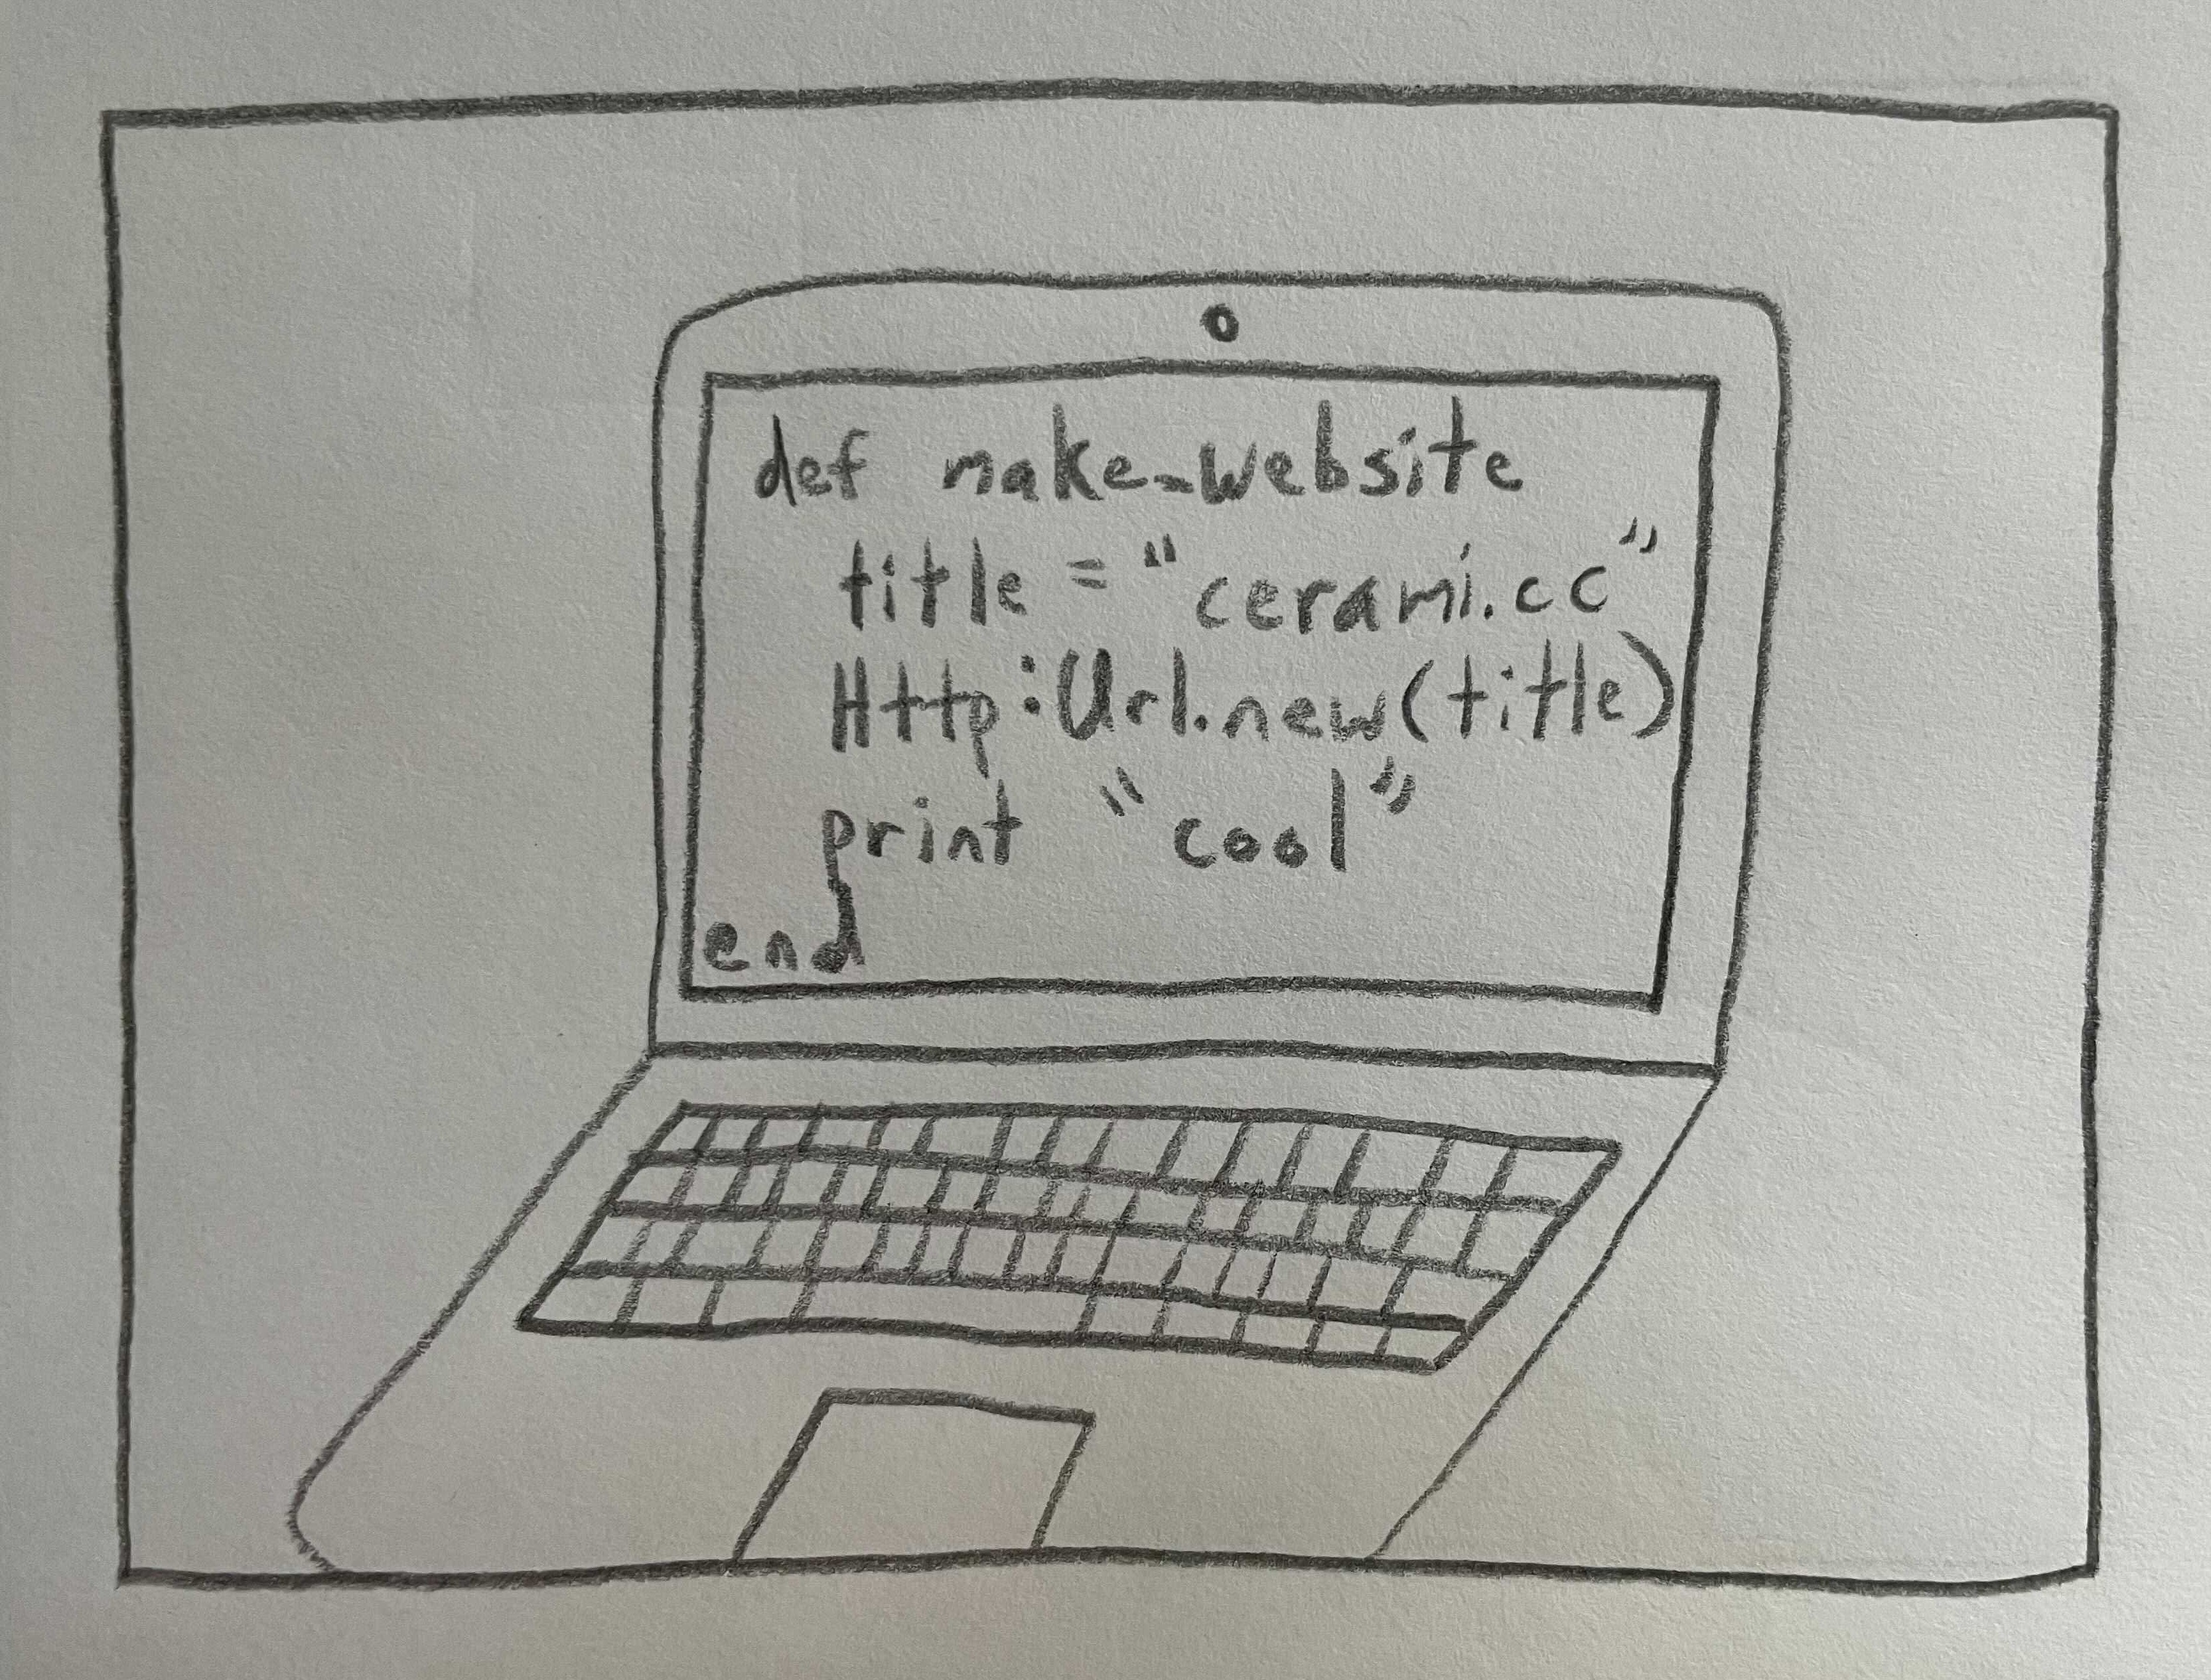 def make_website
title = "cerami.cc"
Http:Url.new(title)
print "cool"
end